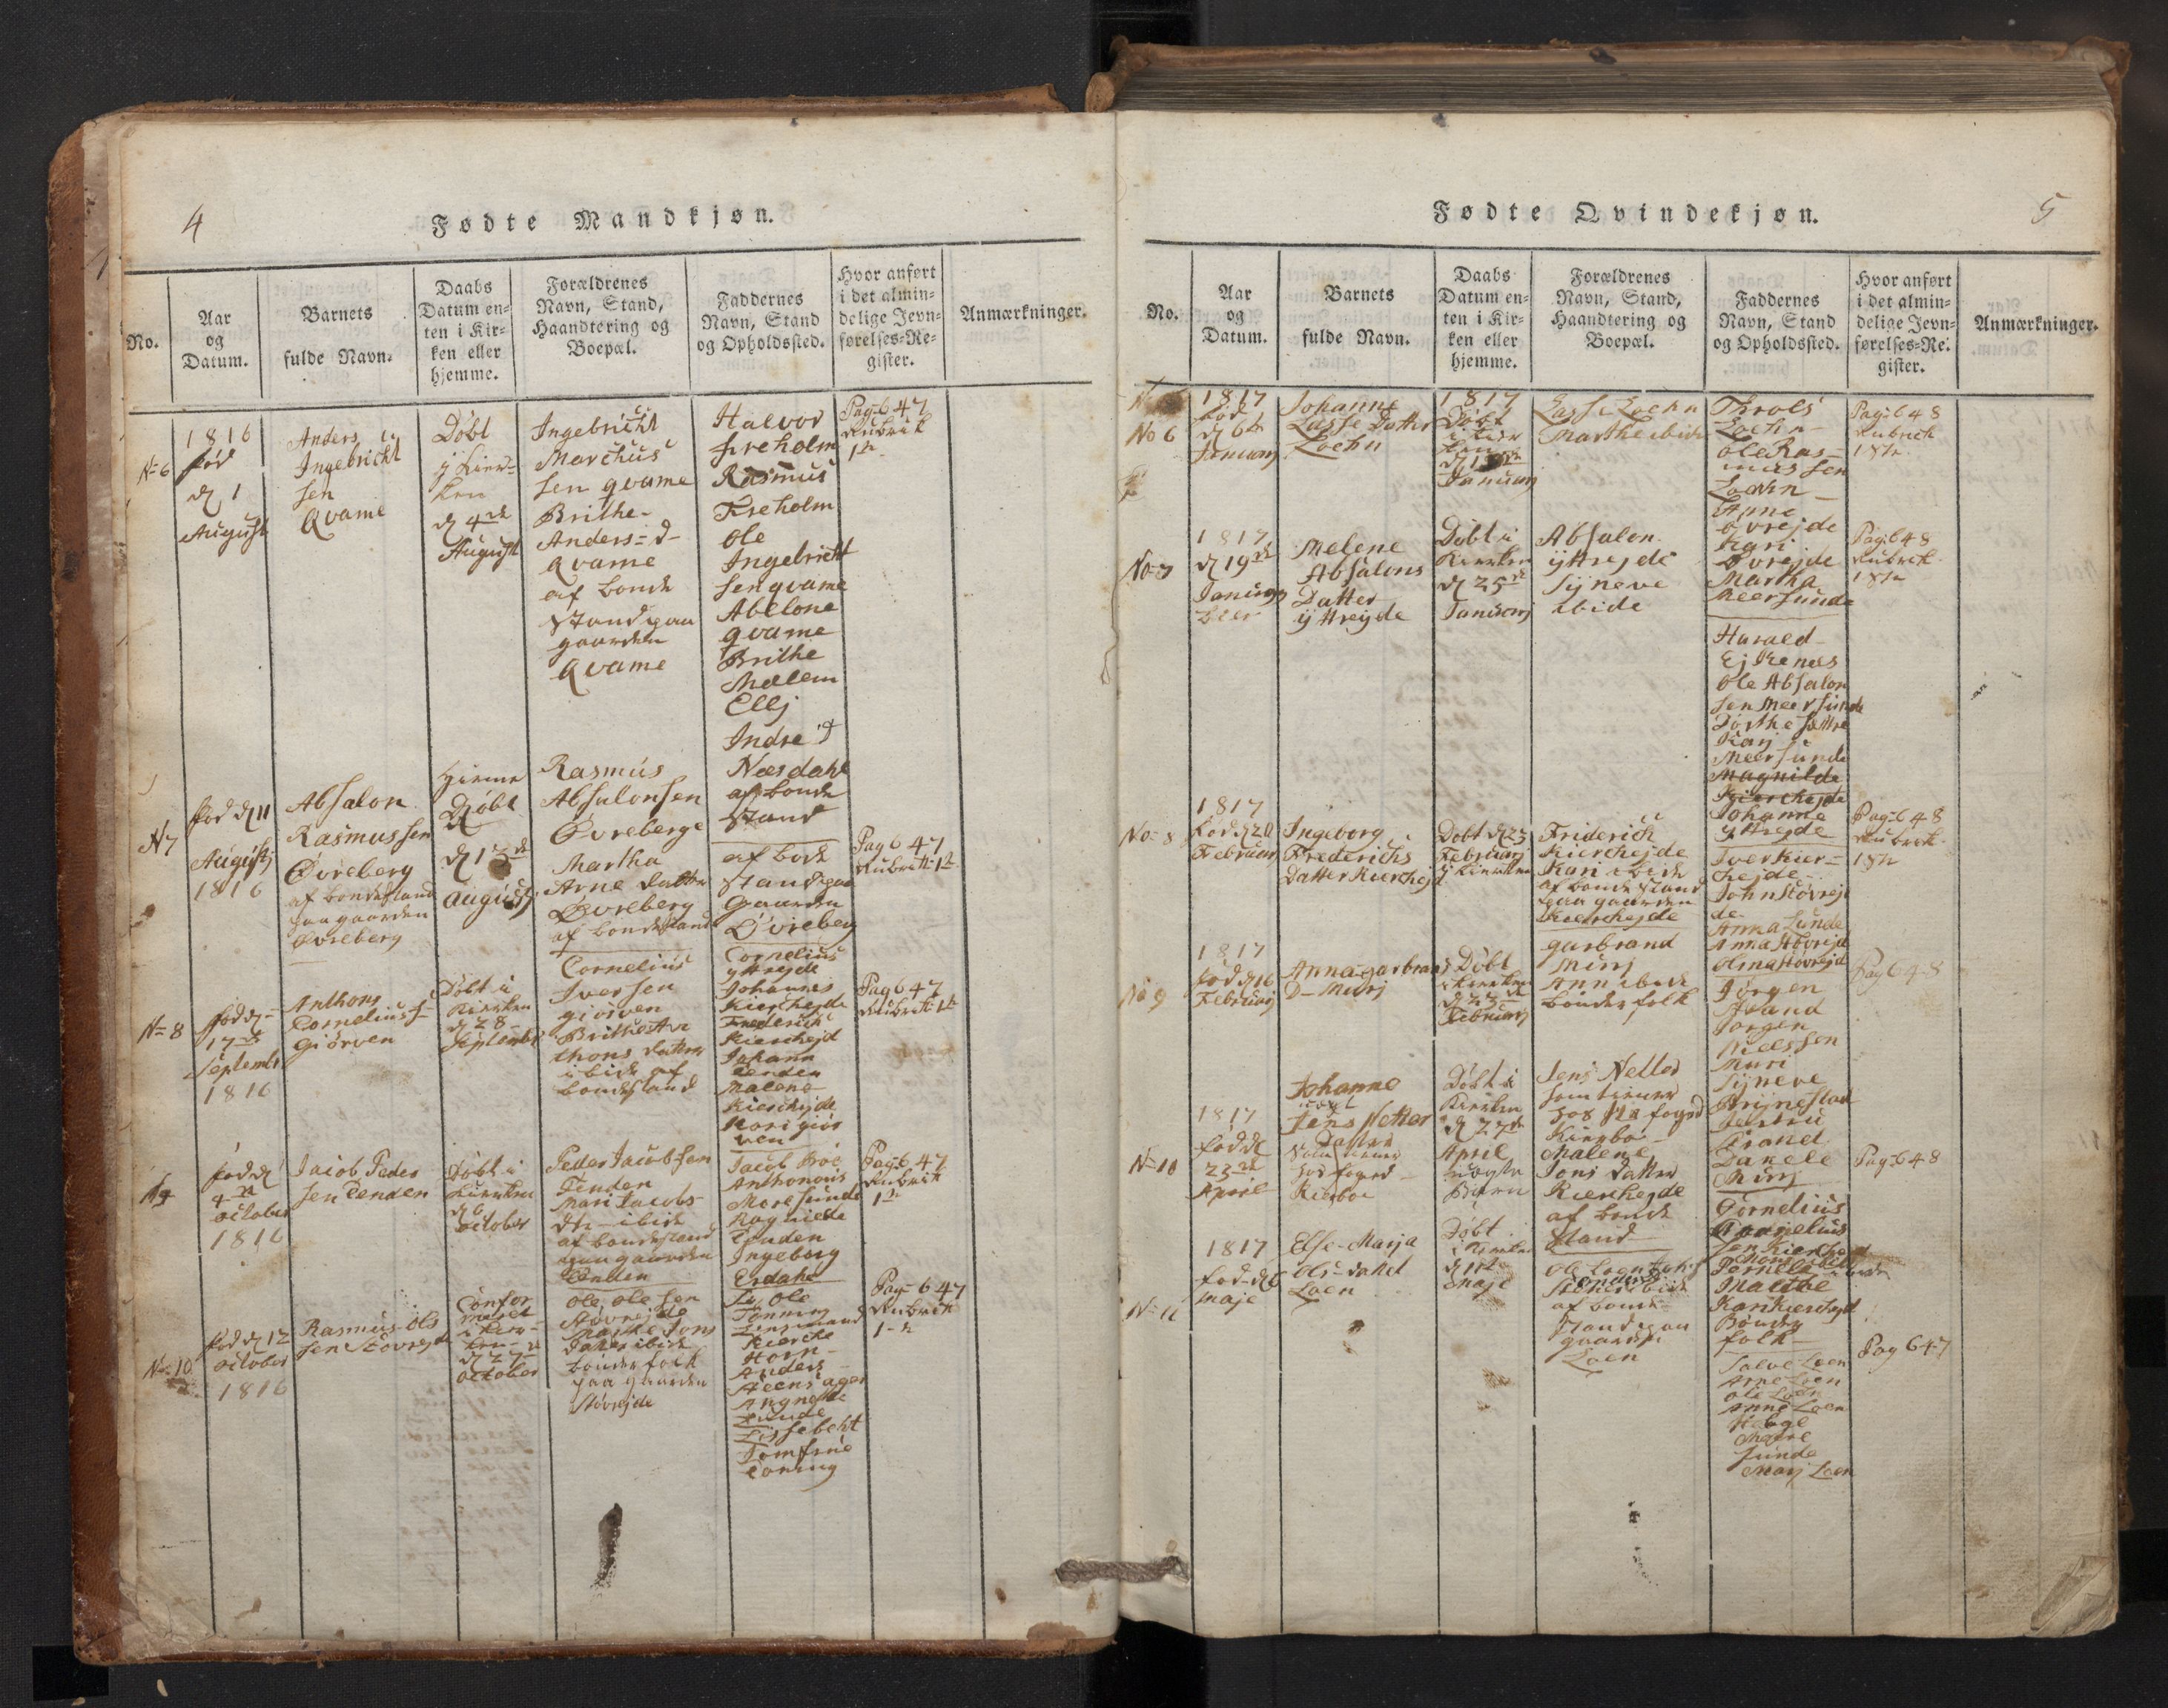 4
Fødte Mandkjøn.
No.
Aar
og
Datum.
Barnets
fulde Navn.
Daabs
Datum en-
ten i Kir-
ken eller
hjemme.
Forældrenes
Navn, Stand,
Haandtering og
Boepæl.
Faddernes
Navn, Stand
og Opholdssted.
Hvor anført
i det almin-
delige Jevn-
førelses-Re-
gister.
Anmærkninger.
No 6
1816
fød
d 1
August
Anders
Ingebricht
sen
Qvame
Døbt
i Kier-
ken
d 4de
August
Ingebricht
Marchus
sen qvame
Brithe
Anders-d-
Qvame
af bonde
Stand paa
gaarden
Qvame
Halvor
freholm
Rasmus
Freholm
Ole
Ingebricht
sen qvame
Abelone
qvame
Brithe
Mælem
Ellj
Indre d
Næsdahl
af bonde
Stand
Pag 647
Rubrik
1te
N 7
fød d 11
Augustj
1816
Absalon
Rasmussen
Øvreberg
af bondestand
paa gaarden
Øvreberg
Hiemme
Døbt
d 13de
Augustj
Rasmus
Absalonsen
Øvreberge
Martha
Arne datter
Øvreberg
af bondestand
af bode
Stand paa
Gaarden
Øvreberg
Pag 647
Rubrik 1te
No 8
fød d
17de
Septembr
1816
Anthons
Cornelius s
Giørven
Døbt i
Kierken
d 28
September
Cornelius
Iversen
giørven
Brithe An
thons datter
ibide af
bondestand
Cornelius
yttrejde
Johannes
Kierchejde
Frederich
Kierchejd
Johann
tenden
Malene
Kierchejde
Kari giør
ven
Pag 647
Rubrik 1te
N 9
fød d
4de
October
1816
Jacob Peder
sen Tenden
Døbt i
Kierken
d 6
October
Peder Jacobsen
Tenden
Mari Jacobs
dtr ibide
af bondestand
paa gaarden
Tenden
Jacob Bøe
Anthonius
Møresunde
Ragnilde
Tenden
Ingeborg
Erdahl
Pag 647
Rubrik
1te
No 10
fød d 12
October
1816
Rasmus Ols
sen Støvrejde
Confor
meret
i Kier-
ken
d 27
October
Ole Olesen
Støvrejde
Marthe Jons
Datter ibide
bønderfolk
paa gaarden
Støvrejde
Ole
Tønning
Lensmand
Kierche
Horn
Anders
Steensager
Angnethe
Lunde
Lissebeht
Jomfrue
Toning
Pag 647
Rubrik
1te
5
Fødte Qvindekjøn.
No.
Aar
og
Datum.
Barnets
fulde Navn.
Daabs
Datum en-
ten i Kir-
ken eller
hjemme.
Forældrenes
Navn, Stand,
Haandtering og
Boepæl.
Faddernes
Navn, Stand
og Opholdssted.
Hvor anført
i det almin-
delige Jevn-
førelses-Re-
gister.
Anmærkninger.
No 6
1817
fød
d 6te
Januarj
Johanne
Lasse Datter
Loehn
1817
Døbt
i Kier
ken
Januarj
Lasse Loehn
Marthe ibide
Throls
Loehn
Ole Ras-
mus sen
Loehn
Anne
øvrejde
Kari
øvrejde
Martha
Meersunde
Pag 648
Rubrich
1ste
No 7
1817
d 19de
Januarj
Melene
Absalons
Datter
ÿttrejde
Døbt i
Kierken
d 25de
Januarj
Absalon
ÿttrejde
Sÿneve
ibide
Harald
Ejkenæs
Ole Absalon
sen Meersunde
Dorthe sættre
Karj
Meersunde
Magnilde
Kierchejde
Johanne
yttrejde
Pag 648
Rubrik
1ste
No 8
1817
fød d 20
Februarj
Ingeborg
Frederichs
Datter Kierchejd
Døbt d 23
Februarj
i Kierken
Friderich
Kierchejde
Kari ibide
af bondestand
paa gaarden
Kierchejde
Iver Kier-
chejde
John Støvrej
de
Anna Lunde
Anna Støvrejd
Olina Støvrejd
Pag 648
Rubrik
1ste
No 9
1817
fød d 16
Februarj
Anna garbrand
D Murj
Døbt
i Kierken
d 23
Februarj
garbrand
Murj
Ann ibide
bønder folk
Jørgen
Aland
Jorgen
Nielssen
Muri
Sÿneve
Brÿnestad
Brand
Daniele
Murj
Pag 648
No 10
1817
fød d
23de
April
Johanne
uægt
Jens Netter
Datter
hos foged
Kierboe
Døbt i
Kierken
d 27de
April
uægte
Barn
Jens Netter
som tiener
hos Hr foged
Kierboe
Malene
Jons datter
Kierchejde
af bonde
Stand
Cornelius
Cornelius
sen Kierchejd
Pernele
Malthe
Kari Kierchejd
Bønder
folk
Pag 648
No 11
1817
fød d 6
Maje
Else Marja
Ols datter
Loen
Døbt
i Kierken
Maje
Ole Loen
ibide
af bonde
Stand paa
gaarden
Loen
Salve Loen
Arne Loen
Ole Loen
Anne Loen
Helge
Mære
sunde
Marj Loen
Pag 647